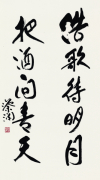 浩歌待明月
把酒问青天